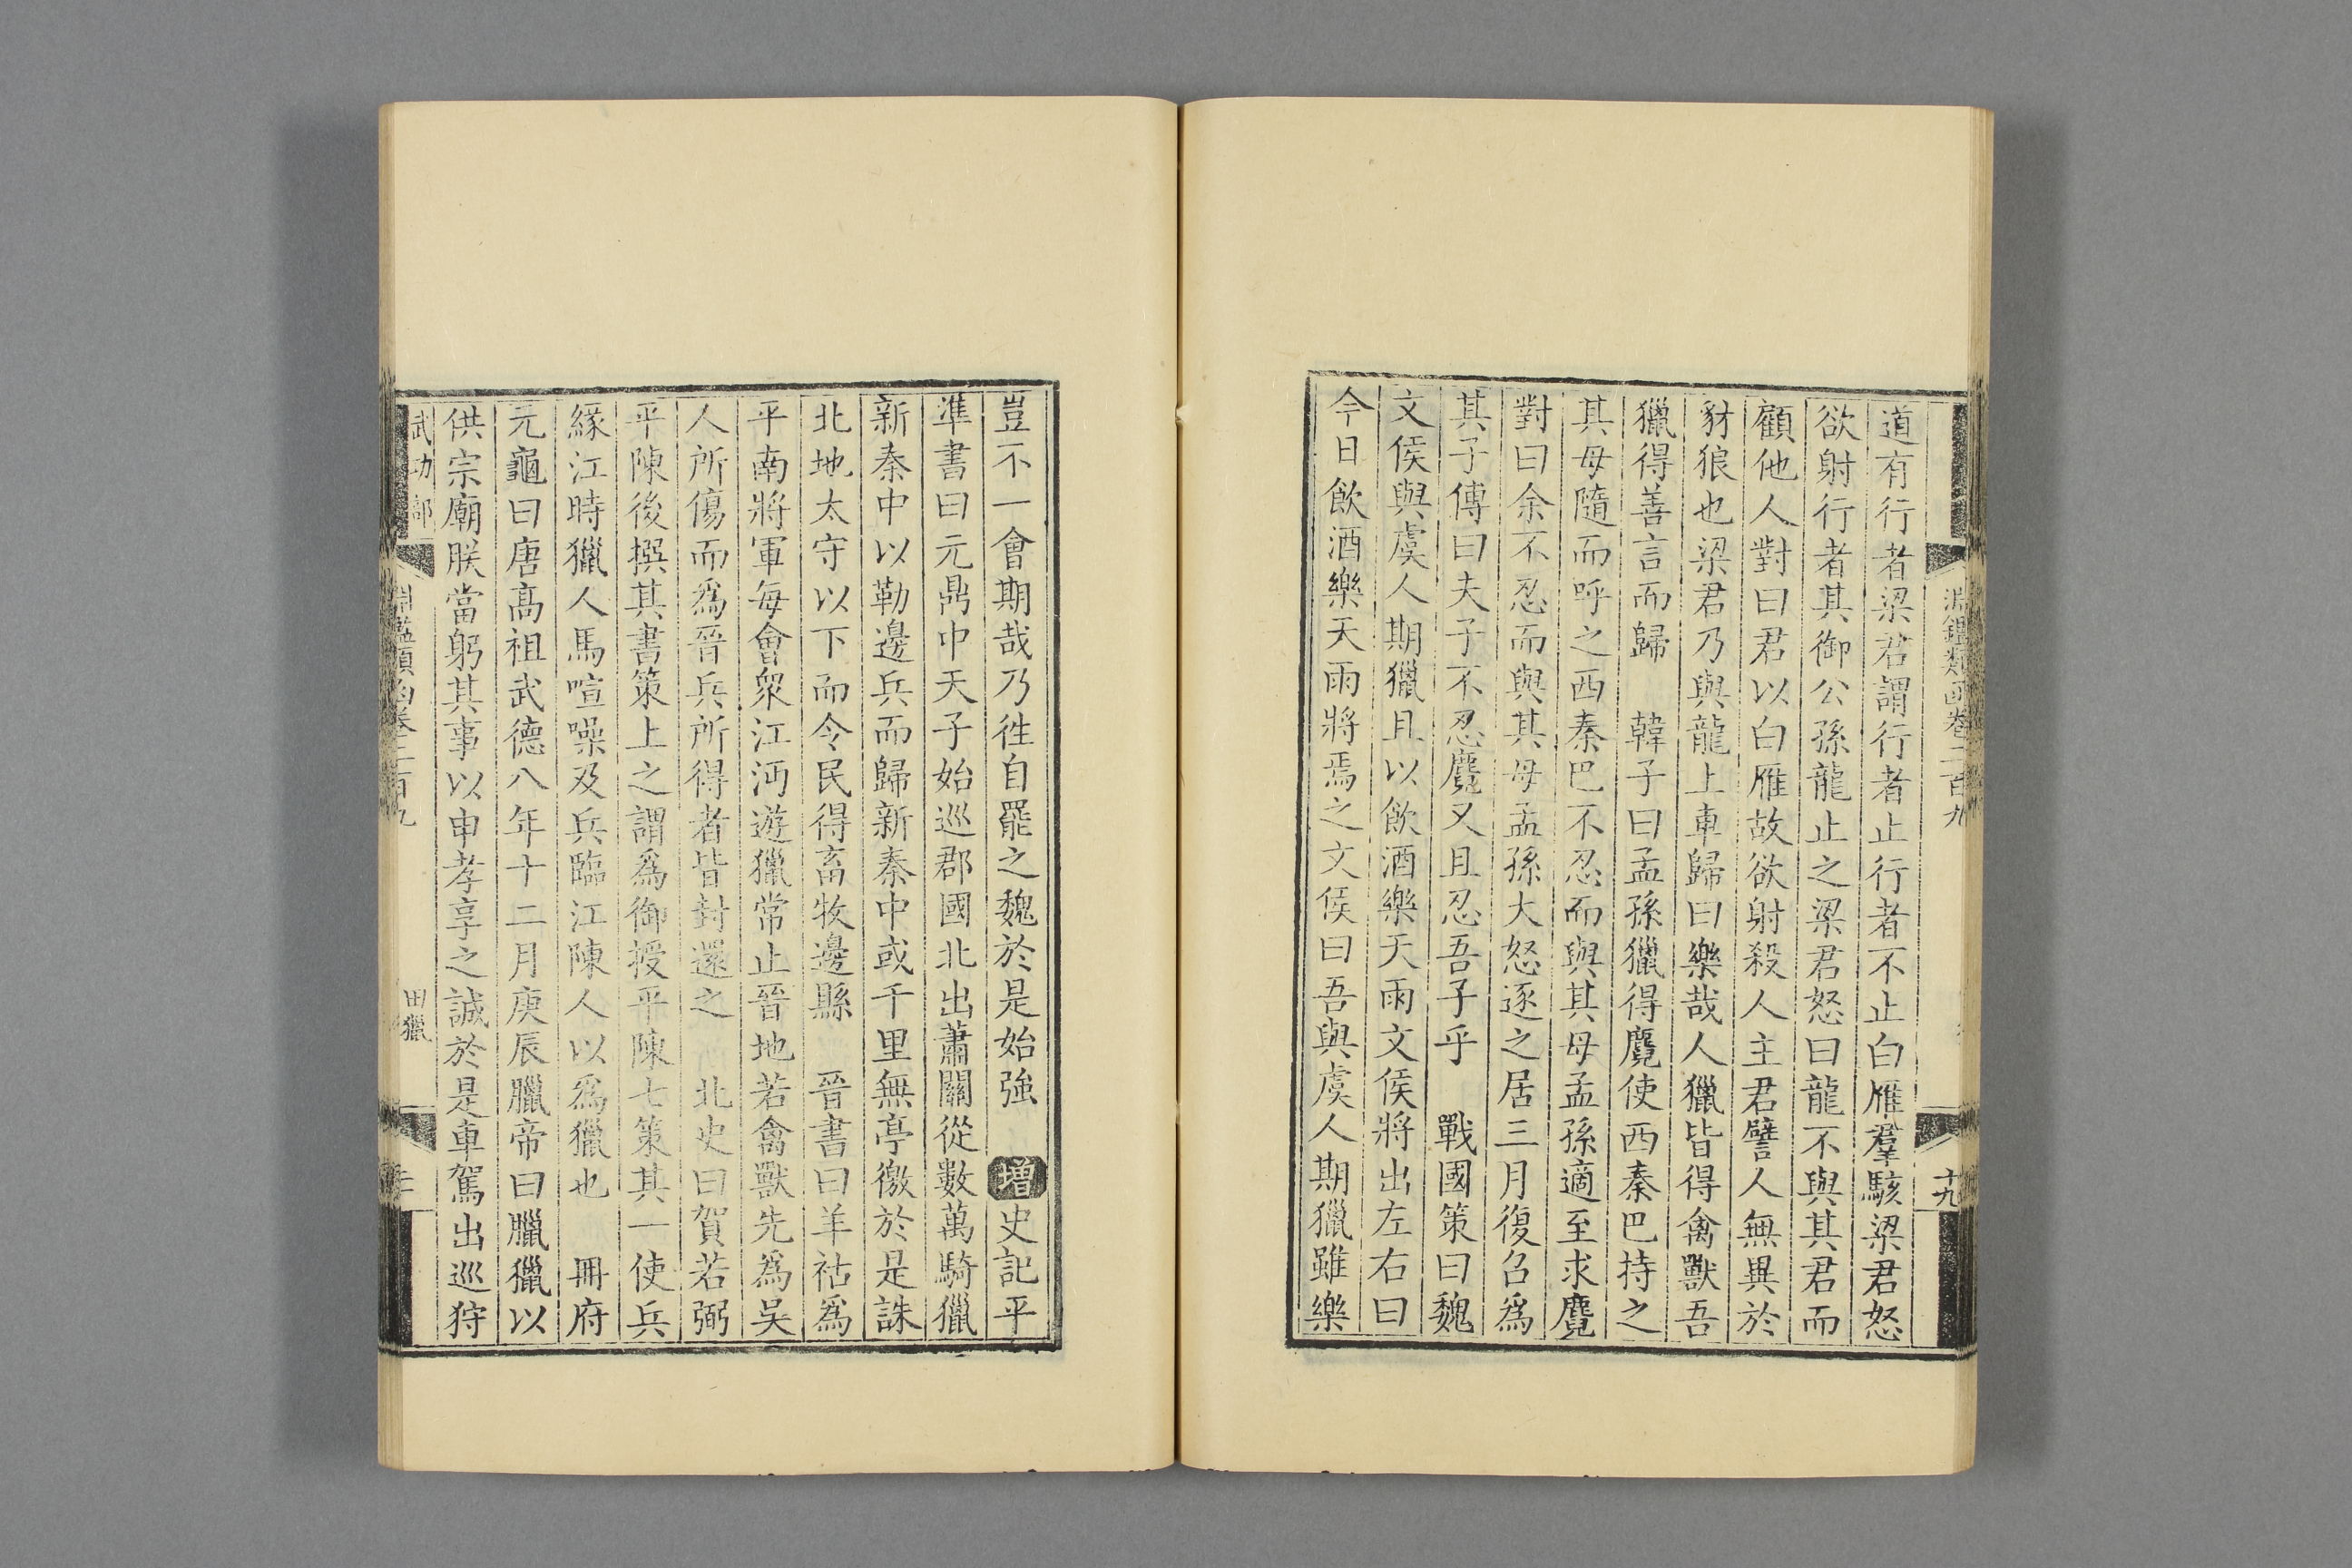 淵鑑類函卷二百九
十九
道有行者梁君謂行者止行者不止白雁羣駭梁君怒
欲射行者其御公孫龍止之梁君怒曰龍不與其君而
顧他人對曰君以白雁故欲射殺人主君譬人無異於
豺狼也梁君乃與龍上車歸曰樂哉人獵皆得禽獸吾
獵得善言而歸　韓子曰孟孫獵得麑使西秦巴持之
其母隨而呼之西秦巴不忍而與其母孟孫適至求麑
對曰余不忍而與其母孟孫大怒逐之居三月復召爲
其子傅曰夫子不忍麑又且忍吾子乎　戰國策曰魏
文侯與虞人期獵且以飲酒樂天雨文侯將出左右曰
今日飲酒樂天雨將焉之文侯曰吾與虞人期獵雖樂
豈不一會期哉乃徃自罷之魏於是始強　増史記平
準書曰元鼎中天子始巡郡國北出蕭關從數萬騎獵
新秦中以勒邊兵而歸新秦中或千里無亭徼於是誅
北地太守以下而令民得畜牧邊縣　晉書曰羊祜爲
平南將軍毎會衆江沔遊獵常止晉地若禽獸先爲吳
人所傷而爲晉兵所得者皆封還之　北史曰賀若弼
平陳後撰其書策上之謂爲御授平陳七策其一使兵
緣江時獵人馬喧噪及兵臨江陳人以爲獵也　冊府
元龜曰唐高祖武德八年十二月庚辰臘帝曰臘獵以
供宗廟朕當躬其事以申孝享之誠於是車駕出巡狩
武功部
淵鑑類函卷二百九
田獵